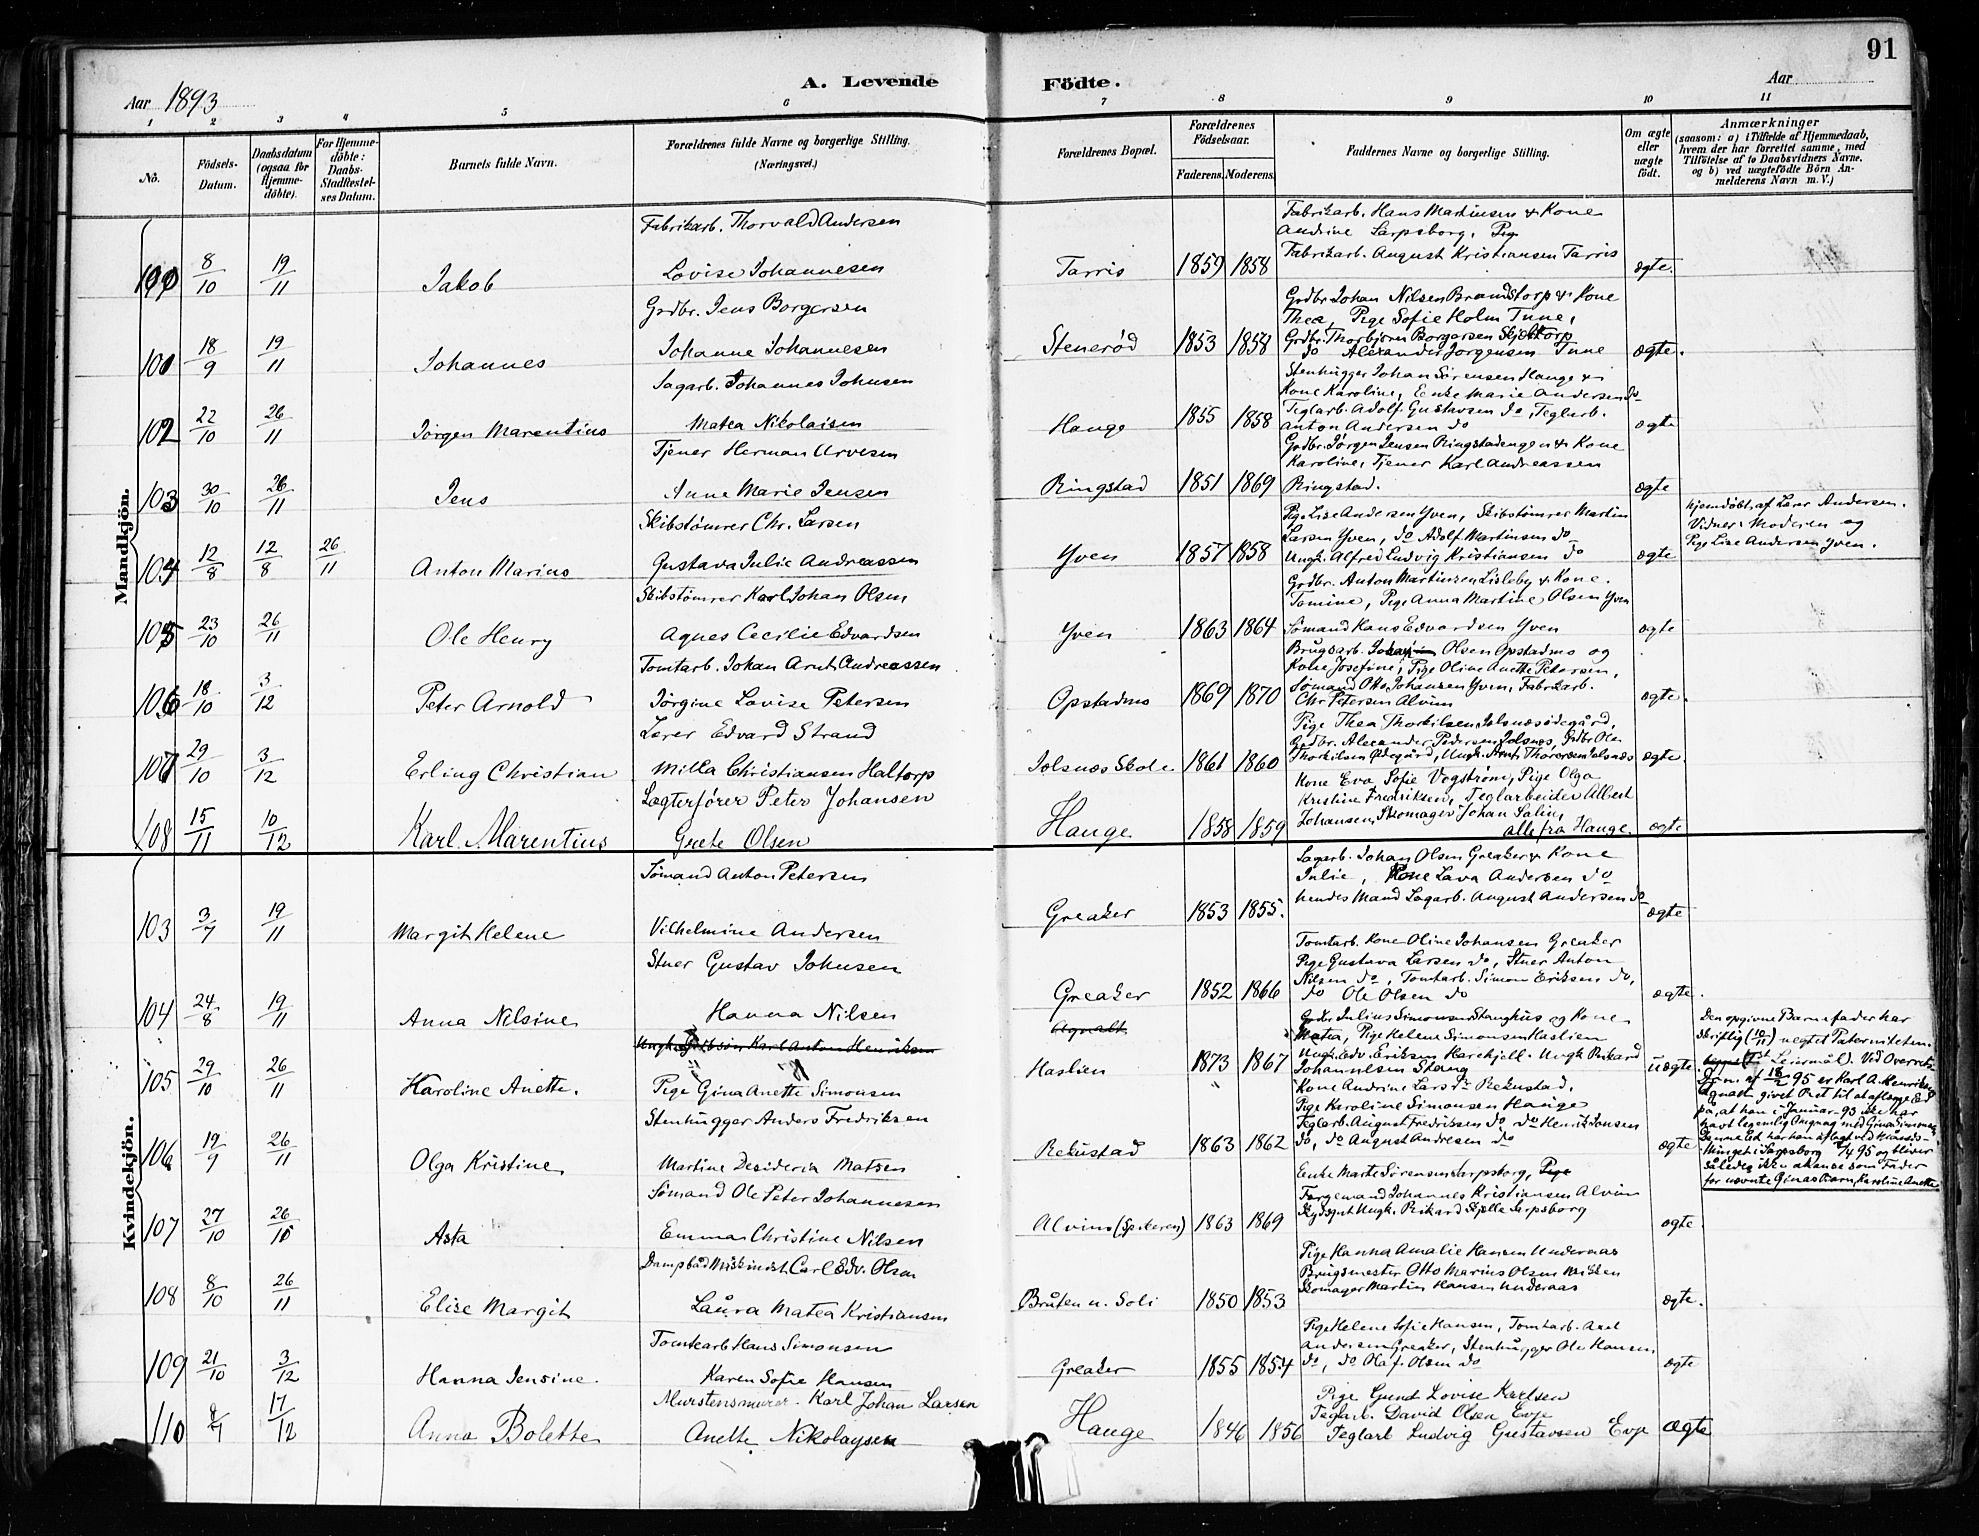 91
A. Levende Födte.
Aar 1893
Aar
1 2 3 4 5 6 7 8 9 10 11
No.
Födsels-Datum.
Daabsdatum (ogsaa for Hjemme-döbte).
For Hjemme-döbte: Daabs-Stadfæstel-ses Datum.
Barnets fulde Navn.
Forældrenes fulde Navne og borgerlige Stilling. (Næringsvei.)
Forældrenes Bopæl.
Forældrenes Födselsaar.
Faderens. Moderens.
Faddernes Navne og borgerlige Stilling.
Om ægte eller uægte födt.
Anmærkninger
(saasom: a) i Tilfælde af Hjemmedaab, hvem der har forrettet samme, med Tilföielse af to Daabsvidners Navne. og b) ved uægtefödte Börn An-melderens Navn m. V.)
Mandkjön.
Fabrikarb. Thorvald Andersen
Fabrikarb. Hans Martinsen & Kone
Andrine Sarpsborg,
8/10 19/11 Jakob Lovise Johannesen Tarris 1859 1858 Fabrikarb. August Kristiansen Tarris ægte.
Grdbr. Jens Borgersen
Grdbr. Johan Nilsen Brandstorp & Kone
Thea, Pige Sofie Holm Tune,
18/9 19/11 Johannes Johanne Johannesen Stenerød 1853 1858 Grdbr. Thorbjørn Borgersen Skjeltorp
do Alexander Jørgensen Tune ægte.
Sagarb. Johannes Johnsen
Stenhugger Johan Sørensen Hauge &
Kone Karoline, Enke Marie Andersen do
102 22/10 26/11 Jørgen Marentius Matea Nikolaisen Hauge 1855 1858 Teglarb. Adolf Gustavsen do, Teglarb.
Anton Andersen do ægte
Tjener Herman Arvesen
Grdbr. Jørgen Jensen Ringstadengen & Kone
Karoline, Tjener Karl Andreassen
103 30/10 26/11 Jens Anne Marie Jensen Ringstad 1851 1869 Ringstad. ægte
Skibstømrer Chr. Larsen
Pige Lise Andersen Yven, Skibstømrer Martin
Larsen Yven, do Adolf Martinsen do
104 12/8 12/8 26/11 Anton Marius Gustava Julie Andreassen Yven 1857 1858 Ungk. Alfred Ludvig Kristiansen do ægte
hjemdøbt af Lærer Andersen.
Vidner: Moderen og
Pige Lise Andersen Yven.
Skibstømrer Karl Johan Olsen
Grdbr. Anton Martinsen Lisleby & Kone
Tomine, Pige Anna Martine Olsen Yven
105 23/10 26/11 Ole Henry Agnes Cecilie Edvardsen Yven 1863 1864 Sømand Hans Edvardsen Yven ægte
Tomtarb. Johan Arnt Andreassen
Brugsarb. Olsen Opstadmo og
Kone Josefine, Pige Oline Anette Petersen,
106 18/10 3/12 Peter Arnold Jørgine Lovise Petersen Opstadmo 1869 1870 Sømand Otto Johansen Yven, Fabrikarb.
Chr. Petersen Alvim ægte.
Lærer Edvard Strand
Pige Thea Thorkilsen Jolsnæsødegård,
Grdbr. Alexander Pedersen Jolsnæs, Grdbr. Ole
107 29/10 3/12 Erling Christian Milla Christiansen Haltorp Jolsnæs Skole 1861 1860 Thorkilsen Ødegård, Ungk. Thoresen Jolsnæs ægte.
Lægterfører Peter Johansen
Kone Eva Sofie Vogstrøm, Pige Olga
Kristine Fredriksen, Teglarbeider Albert
108 15/11 10/12 Karl Marentius Grete Olsen Hauge 1858 1859 Johansen, Skomager Johan Salin,
alle fra Hauge. ægte
Kvindekjön.
Sømand Anton Petersen
Sagarb. Johan Olsen Greaker & Kone
Julie, Kone Lava Andersen do
103 3/7 19/11 Margit Helene Vilhelmine Andersen Greaker 1853 1855. hendes Mand Sagarb. August Andersen do ægte
Stuer Gustav Johnsen
Tomtarb. Kone Oline Johansen Greaker
Pige Gustava Larsen do, Stuer Anton
104 24/8 19/11 Anna Nilsine Hanna Nilsen Greaker 1852 1866 Nilsen do, Tomtarb. Simon Eriksen do,
do Ole Olsen do ægte.
Karl Anton Henriksen
Agnalt
Julius Simonsen Stanghus og Kone
Matea, Pige Helene Simonsen Haslien
105 29/10 26/11 Karoline Anette. Pige Gina Anette Simonsen Haslien 1873 1867 Ungk. Edv. Eriksen Ungk. Rikard
Johannesen Stang uægte
Den opgivne Barnefader har
skriftlig negtet Paterniteten.
Leiermål). Ved Overrets-
af 18/2 95 er Karl A. Henriksen
Agnalt givet Ret til at aflægge Ed
på, at han i Januar 93 ikke har
havt legemlig Omgang med Gina Simonsen
Denne Ed har han aflagt ved
tinget i Sarpsborg /4 95 og bliver
således ikke at anse som Fader
for nævnte Ginas Barn, Karoline Anette
Stenhugger Anders Fredriksen
Kone Andrine Larsdr. Rekustad,
Pige Karoline Simonsen Hauge
106 19/9 26/11 Olga Kristine Martine Desideria Matsen Rekustad 1863 1862 Teglarb. August Fredriksen do, do Henrik Jonsen
do, do August Andresen do ægte
Sømand Ole Peter Johannesen
Enke Marte Sørensen Sarpsborg, Pige
Færgemand Johannes Kristiansen Alvim
107 27/10 26/15 Asta Emma Christine Nilsen Alvim (Spikeren) 1863 1869 Ungk. Rikard Skjelle Sarpsborg ægte
Dampbåd Maskinist Carl Edv. Olsen
Pige Hanna Amalie Hansen Underaas
Brugsmester Otto Marius Olsen
108 8/10 26/11 Elise Margit Laura Matea Kristiansen Bråten u. Soli 1850 1853 Skomager Martin Hansen Underaas ægte.
Tomtearb Hans Simonsen
Pige Helene Sofie Hansen, Tomtarb. Axel
Andersen Greaker, Stenhugger Ole Hansen
109 21/10 3/12 Hanna Jensine. Karen Sofie Hansen Greaker 1855 1854 do, do Olaf Olsen do ægte
Murstensmurer. Karl Johan Larsen
Pige Gunel Lovise Karlsen
Teglarb. David Olsen Evje
110 17/12 Anna Bolette Anette Nikolaysen Hauge 1846 1856 Teglarb Ludvig Gustavsen Evje ægte